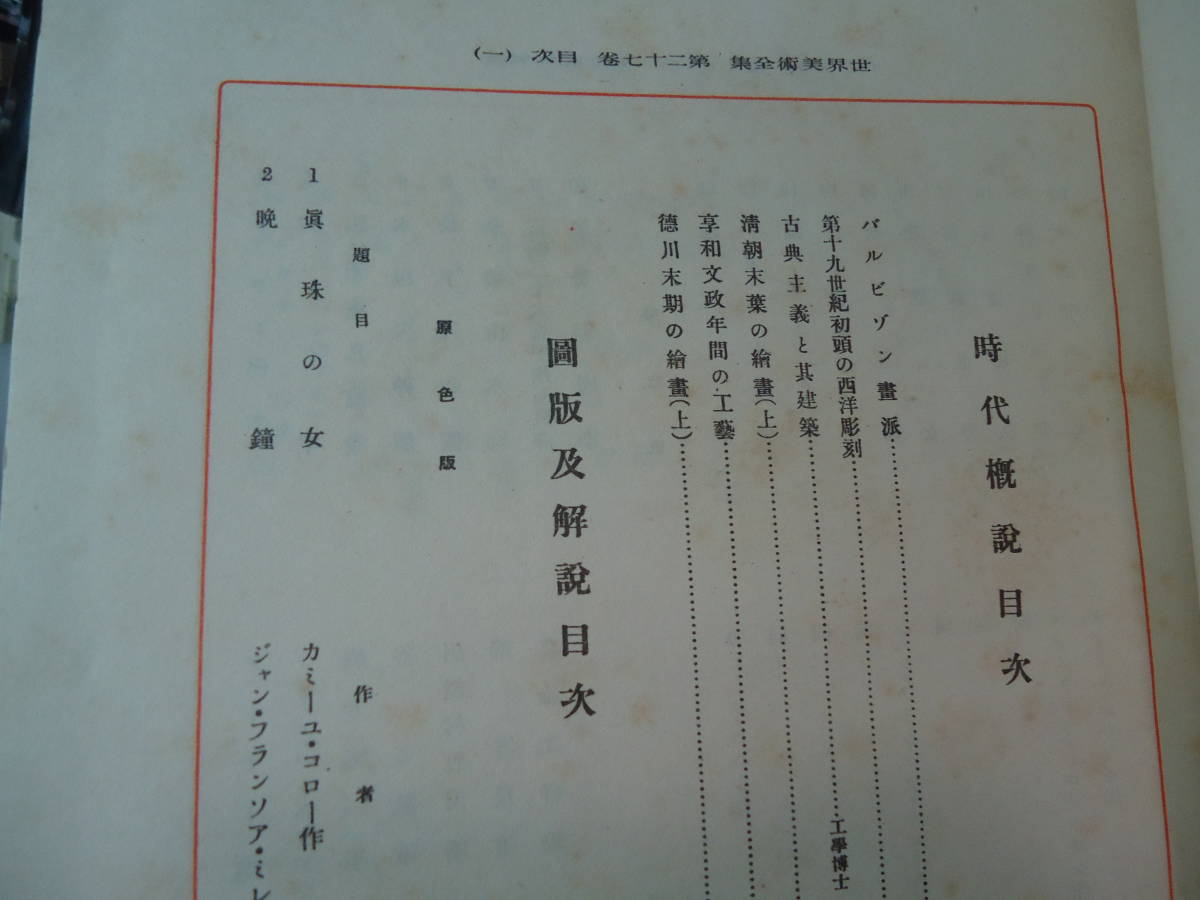 世界美術全集 第二十七卷 目次 (一)
時代概說目次
バルビゾン畫派
第十九世紀初頭の西洋彫刻
古典主義と其建築 工學博士
淸朝末葉の繪畫(上)
享和文政年間の工藝
德川末期の繪畫(上)
圖版及解說目次
原色版
題目 作者
1 眞珠の女 カミーユ・コロー作
2 晚鐘 ジャン・フランソア・ミレ